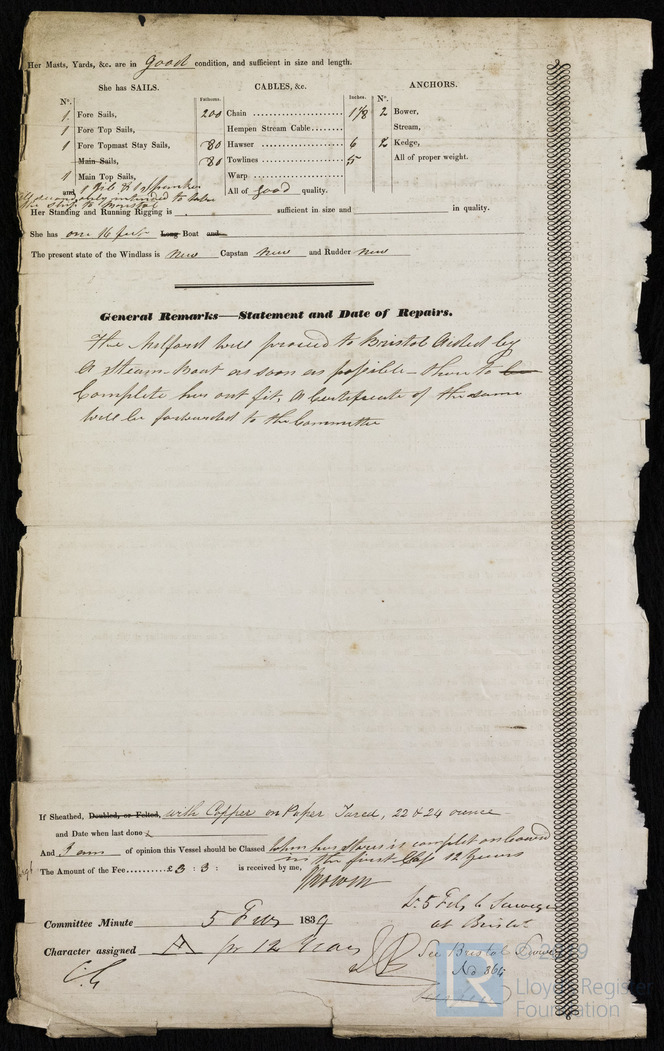 Her Masts, Yards, &c. are in good condition, and sufficient in size and length.
She has SAILS.
CABLES, &c.
ANCHORS.
N°.
Fathoms.
Inches.
N°.
1 Fore Sails,
200 Chain 1 1/8
2 Bower,
1 Fore Top Sails,
Hempen Stream Cable
Stream,
1 Fore Topmast Stay Sails,
80 Hawser 6
2 Kedge,
Main Sails,
80 Towlines 5
All of proper weight.
1 Main Top Sails,
Warp
and 1 Jib & 1 Spanker
All of good quality.
intended to take
the ship to Bristol
Her Standing and Running Rigging is sufficient in size and in quality.
She has one 16 feet Long Boat and
The present state of the Windlass is New Capstan New and Rudder New
General Remarks—Statement and Date of Repairs.
The Milford will proceed to Bristol Aided by
A Steam-Boat as soon as possible - there to
Complete her out fit. A Certificate of the same
Will be forwarded to the Committee
If Sheathed, Doubled, or Felted, with Copper on Paper Tared, 22 & 24 ounce
and Date when last done
And I am of opinion this Vessel should be Classed when her Stores is complet on board
in the first Class 12 Years
The Amount of the Fee £3 : 3 : is received by me,
5 Feby to Surveyor
at Bristol
Committee Minute 5 Feby 1839
Character assigned A for 12 Years
See Bristol Survey
No 364
© 2019
Lloyd's Register
Foundation
LR